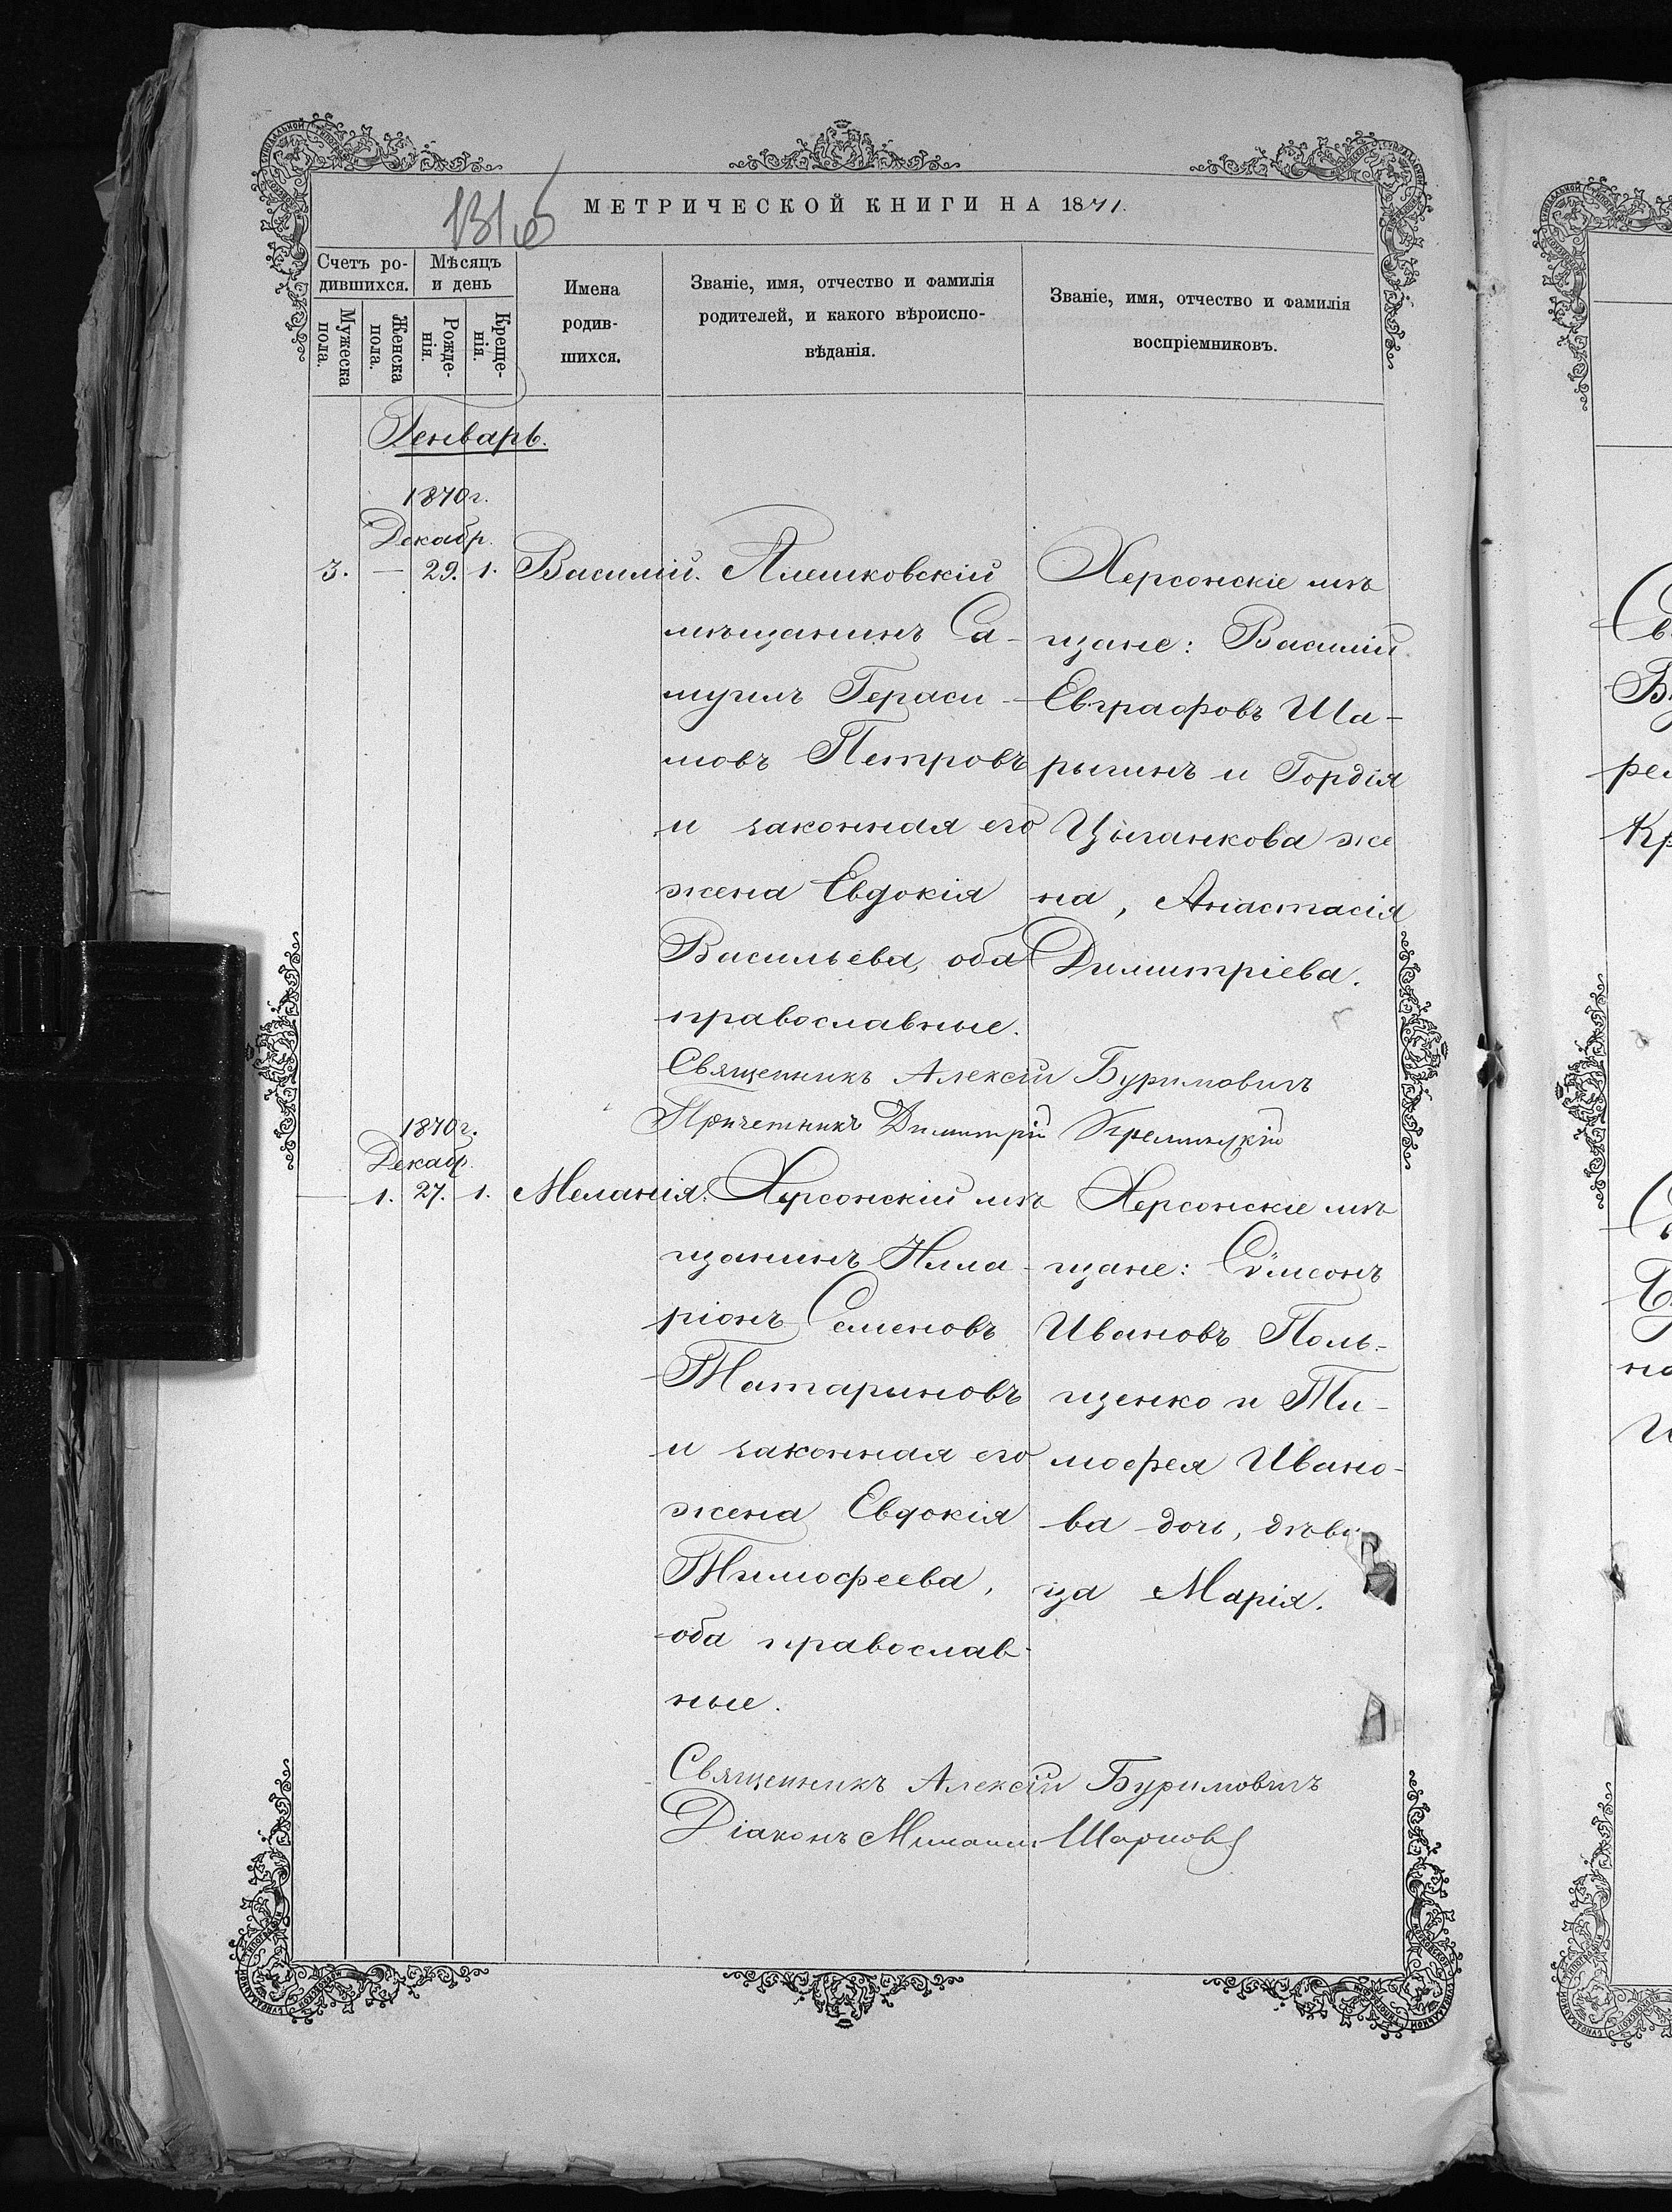 МЕТРИЧЕСКОЙ КНИГИ НА 1871.
Счетъ ро-
дившихся.
Мѣсяцъ
и день
Мужеска
пола.
Женска
пола.
Рожде-
нія.
Креще-
нія.
Имена
родив-
шихся.
Званіе, имя, отчество и фамилія
родителей, и какого вѣроиспо-
вѣданія.
Званіе, имя, отчество и фамилія
воспріемниковъ.
Генварь.
1870г.
Декабр.
3. — 29. 1. Василій.
Алешковскій
мѣщанинъ Са-
муилъ Гераси-
мовъ Петровъ
и законная его
жена Евдокія
Васильева, оба
православные.
Херсонскіе мѣ
щане: Василій
Евграфовъ Ша-
рыгинъ и Гордія
Цыганкова же
на, Анастасія
Димитріева.
Священникъ Алексій Буримовичъ
Причетникъ Димитрій
1870г.
Декаб.
— 1. 27. 1. Меланія.
Херсонскій мѣ
щанинъ Илла-
ріонъ Семеновъ
Татариновъ
и законная его
жена Евдокія
Тимофеева,
оба православ-
ные.
Херсонскіе мѣ
щане: Сѵмеонъ
Ивановъ Поль-
щенко и Ти-
мофея Ивано-
ва дочь, дѣви
ца Марія.
Священникъ Алексій Буримовичъ
Діаконъ Михаилъ